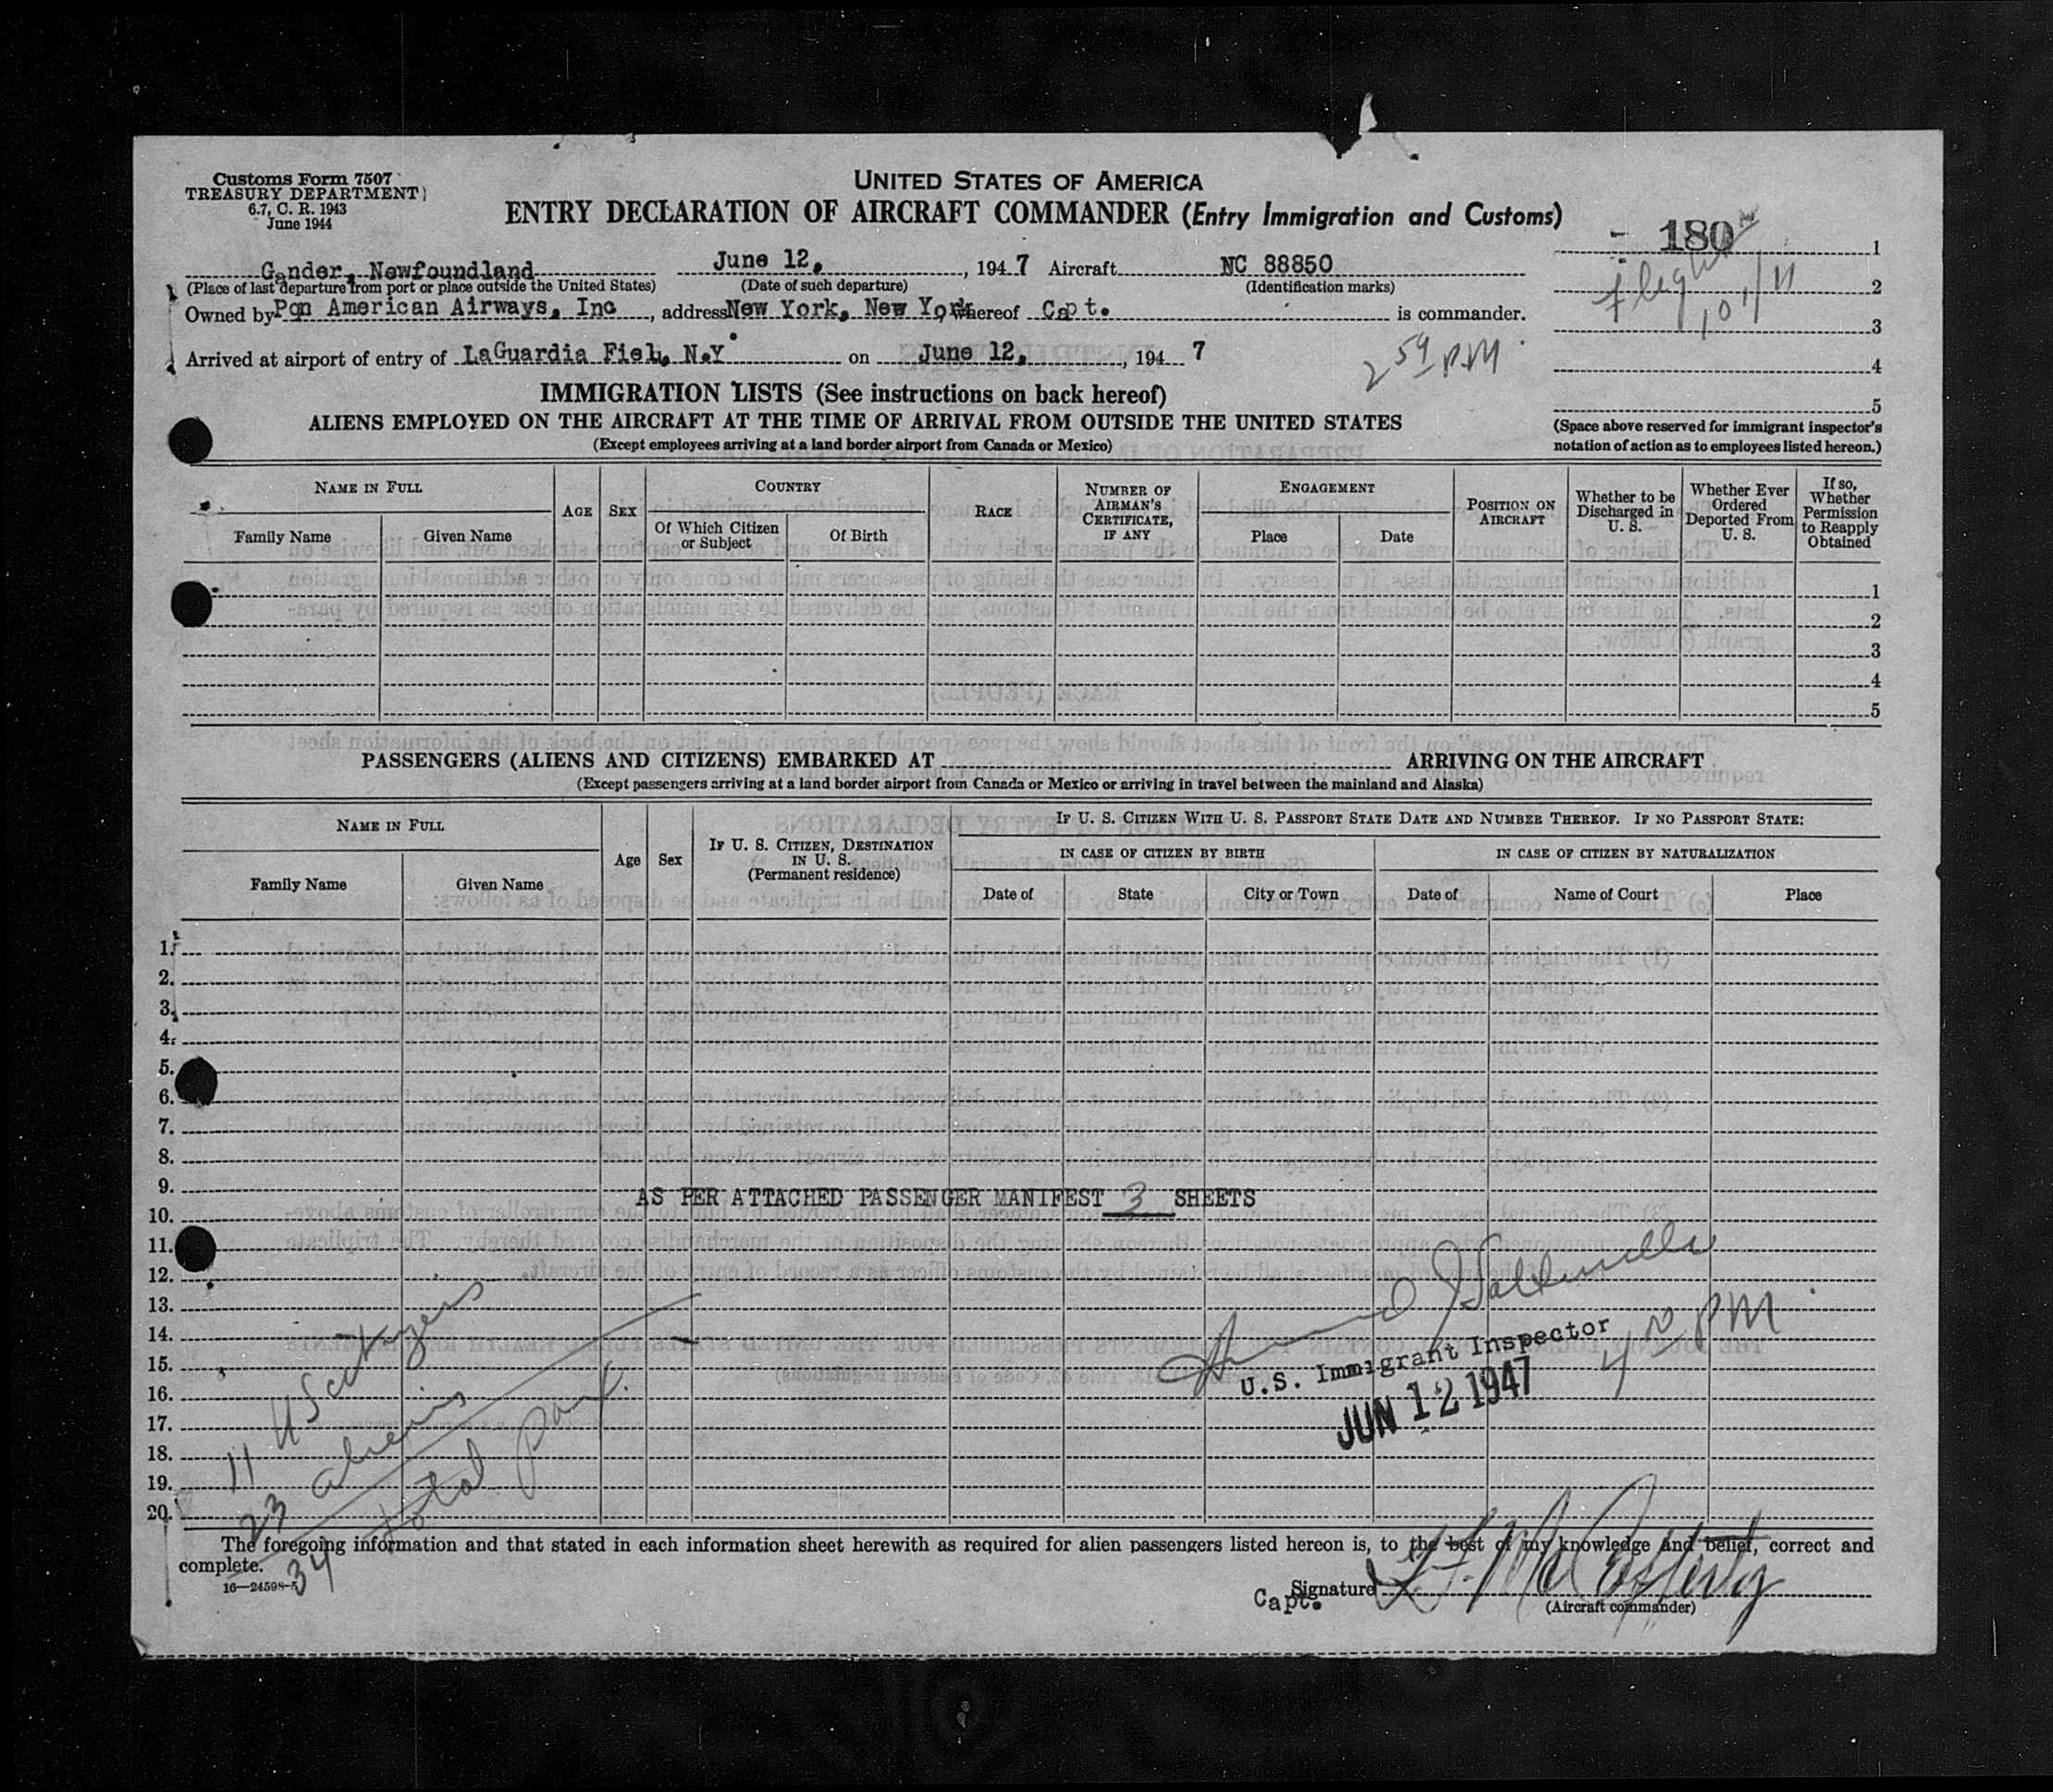 Customs Form 7507
TREASURY DEPARTMENT
6.7, C. R. 1943
June 1944
UNITED STATES OF AMERICA
ENTRY DECLARATION OF AIRCRAFT COMMANDER (Entry Immigration and Customs)
180
Gander, Newfoundland June 12, , 194 7 Aircraft NC 88850
(Place of last departure from port or place outside the United States) (Date of such departure) (Identification marks)
Owned by Pan American Airways, Inc , address New York, New York, whereof Capt. is commander.
Arrived at airport of entry of LaGuardia Fiel, N.Y. on June 12, , 194 7
flight 101/11
2 59 P.M.
1
2
3
4
5
(Space above reserved for immigrant inspector's
notation of action as to employees listed hereon.)
IMMIGRATION LISTS (See instructions on back hereof)
ALIENS EMPLOYED ON THE AIRCRAFT AT THE TIME OF ARRIVAL FROM OUTSIDE THE UNITED STATES
(Except employees arriving at a land border airport from Canada or Mexico)
NAME IN FULL
Family Name Given Name
AGE SEX
COUNTRY
Of Which Citizen or Subject
Of Birth
RACE
NUMBER OF AIRMAN'S CERTIFICATE, IF ANY
ENGAGEMENT
Place Date
POSITION ON AIRCRAFT
Whether to be Discharged in U. S.
Whether Ever Ordered Deported From U. S.
If so, Whether Permission to Reapply Obtained
1
2
3
4
5
PASSENGERS (ALIENS AND CITIZENS) EMBARKED AT ARRIVING ON THE AIRCRAFT
(Except passengers arriving at a land border airport from Canada or Mexico or arriving in travel between the mainland and Alaska)
NAME IN FULL
Family Name Given Name
Age Sex
IF U. S. CITIZEN, DESTINATION IN U. S.
(Permanent residence)
IF U. S. CITIZEN WITH U. S. PASSPORT STATE DATE AND NUMBER THEREOF. IF NO PASSPORT STATE:
IN CASE OF CITIZEN BY BIRTH IN CASE OF CITIZEN BY NATURALIZATION
Date of State City or Town Date of Name of Court Place
1.
2.
3.
4.
5.
6.
7.
8.
9.
AS PER ATTACHED PASSENGER MANIFEST 3 SHEETS
10.
11.
12.
13.
14.
15.
16.
17.
18.
19.
20.
11 US citizens
23 aliens
34 total pax.
U.S. Immigrant Inspector
JUN 12 1947
4 00 PM
The foregoing information and that stated in each information sheet herewith as required for alien passengers listed hereon is, to the best of my knowledge and belief, correct and
complete.
16—24598-1
Capt. Signature McCafferty
(Aircraft commander)